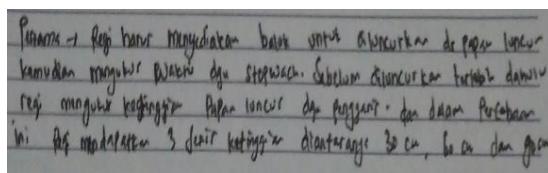 Pertama → Regi harus menyediakan balok untuk diluncurkan di papan luncur
kemudian mengukur waktu dgn stopwach. Sebelum diluncurkan terlebih dahulu
regi mengukur ketinggian Papan luncur dgn penggaris. dan dalam Percobaan
ini Regi mendapatkan 3 jenis ketinggian diantaranya 30 cm, 60 cm dan 90 cm